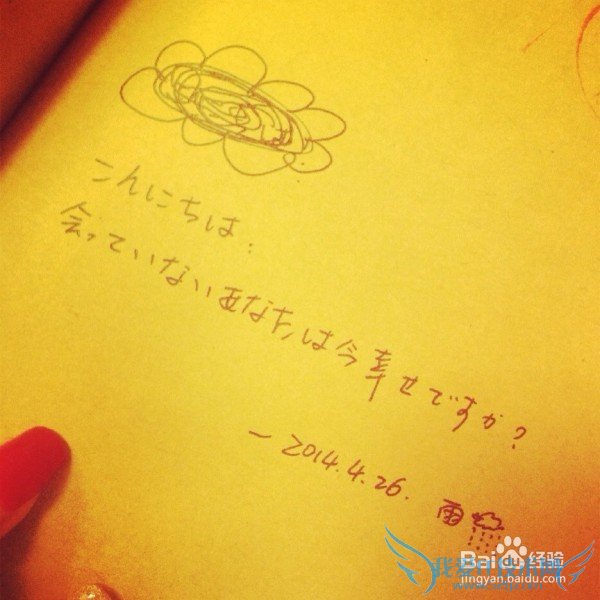 こんにちは:
会っていないあなたは今幸せですか?
— 2014.4.26. 雨
Baidu 经验
jingyan.baidu.com